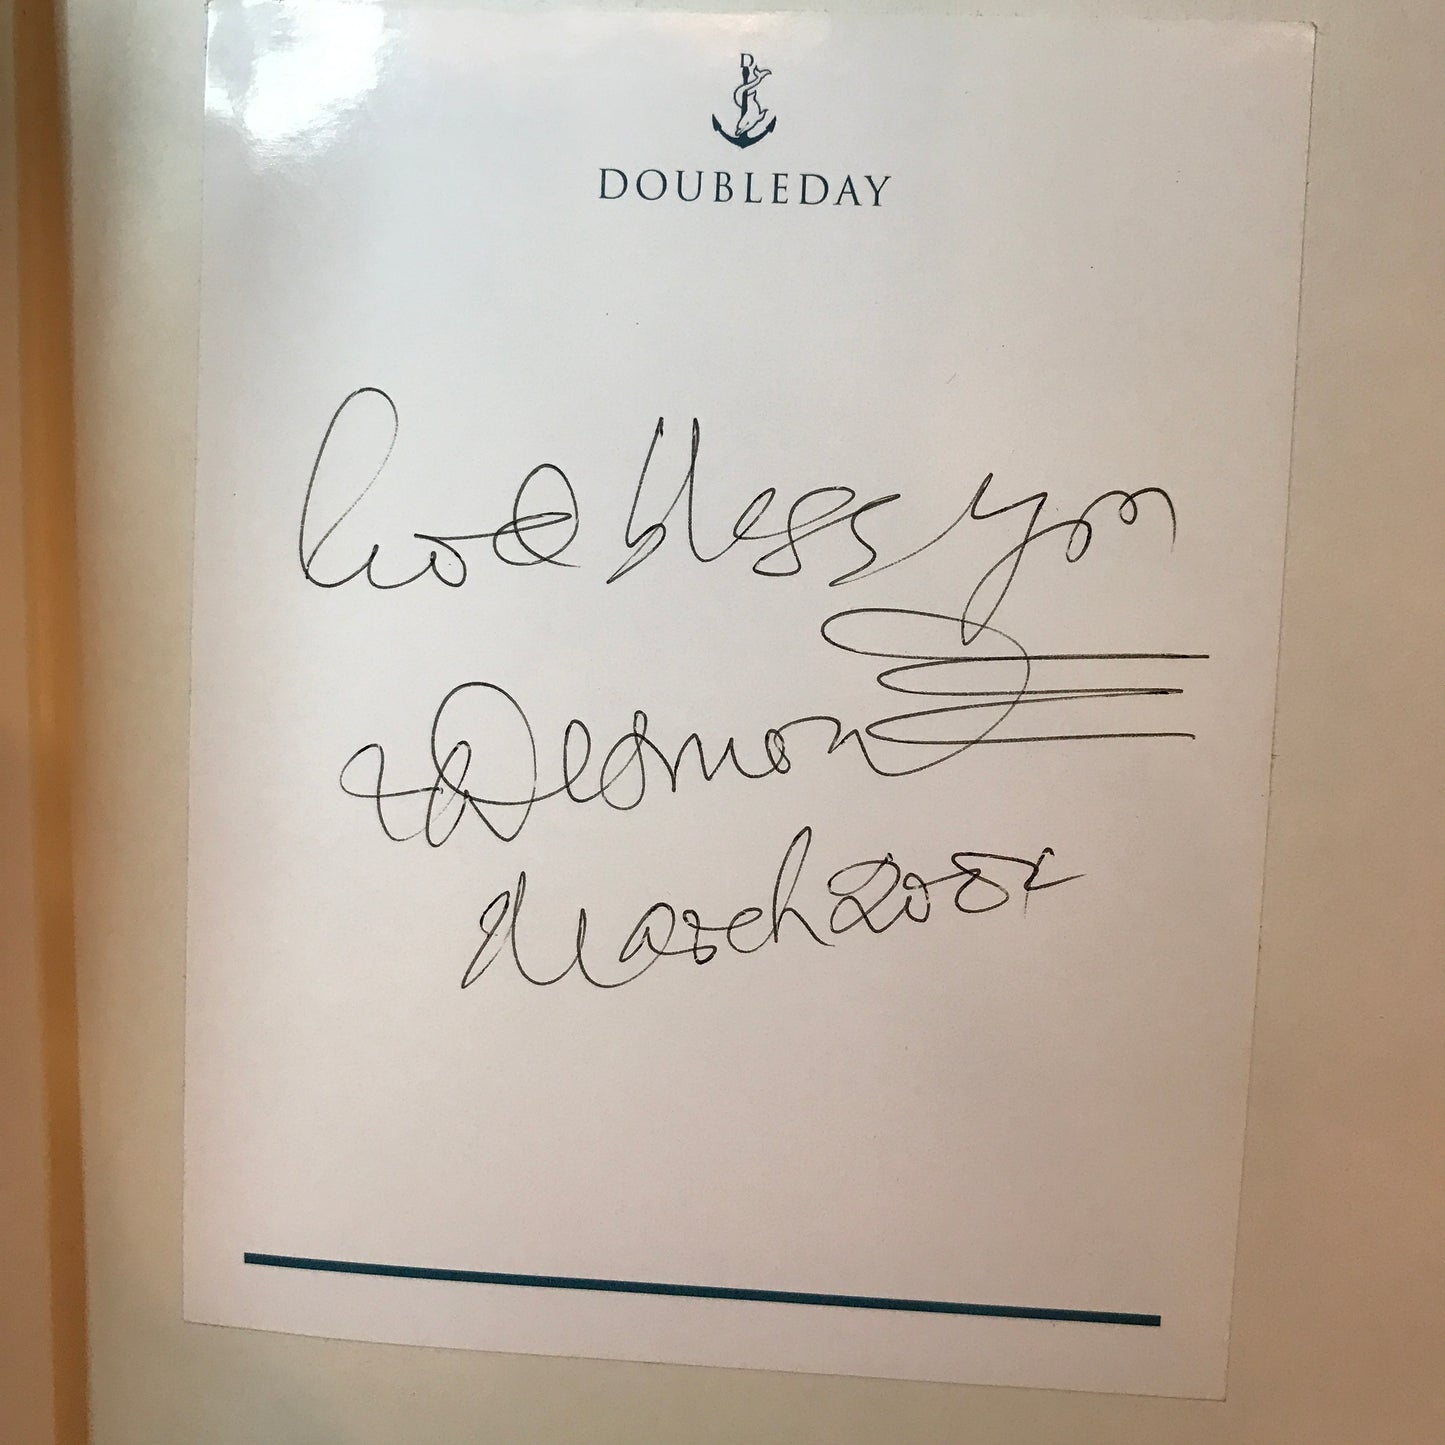 D
DOUBLEDAY
God bless you
+Desmond
March 2004